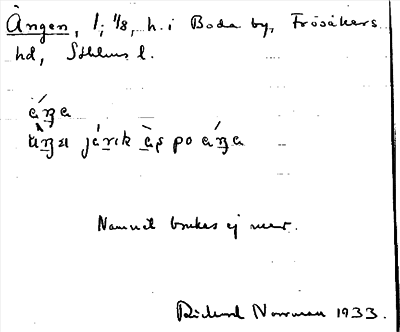 Ängen, /; 1/8, h. i Boda by, Frösåkers
hd, Sthlms l.
áŋa
járɩk às po áŋa
Namnet brukas ej mer.
Rickard Norrman 1933.